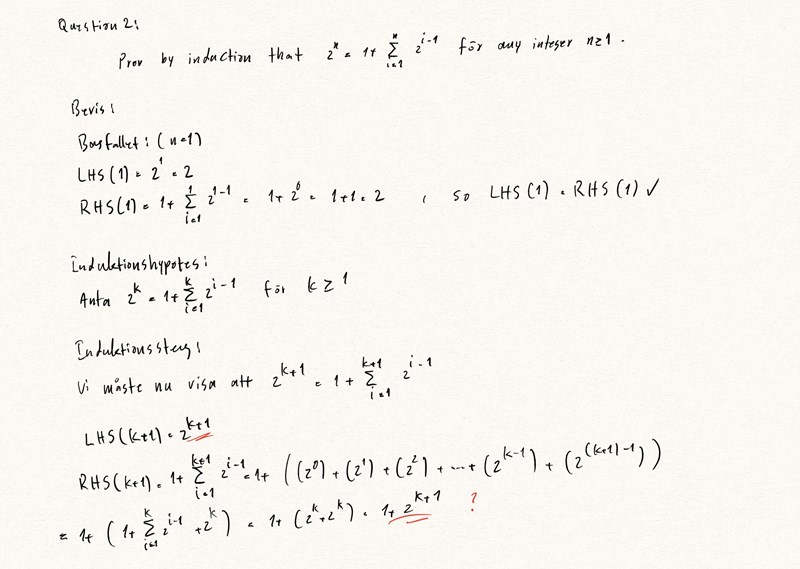 Question 2:
Prov by induction that 2^n = 1+ Σ_{i=1}^{n} 2^{i-1} för any integer n≥1.
Bevis:
Basfallet: (n=1)
LHS(1) = 2^1 = 2
RHS(1) = 1+ Σ_{i=1}^{1} 2^{1-1} = 1+2^0 = 1+1=2 , so LHS(1) = RHS(1) ✓
Induktionshypotes:
Anta 2^k = 1+ Σ_{i=1}^{k} 2^{i-1} för k≥1
Induktionssteg:
Vi måste nu visa att 2^{k+1} = 1+ Σ_{i=1}^{k+1} 2^{i-1}
LHS(k+1) = 2^{k+1}
RHS(k+1) = 1+ Σ_{i=1}^{k+1} 2^{i-1} = 1+ ((2^0)+(2^1)+(2^2)+...+(2^{k-1})+(2^{(k+1)-1}))
= 1+ (1+ Σ_{i=1}^{k} 2^{i-1} +2^k) = 1+ (2^k+2^k) = 1+2^{k+1} ?